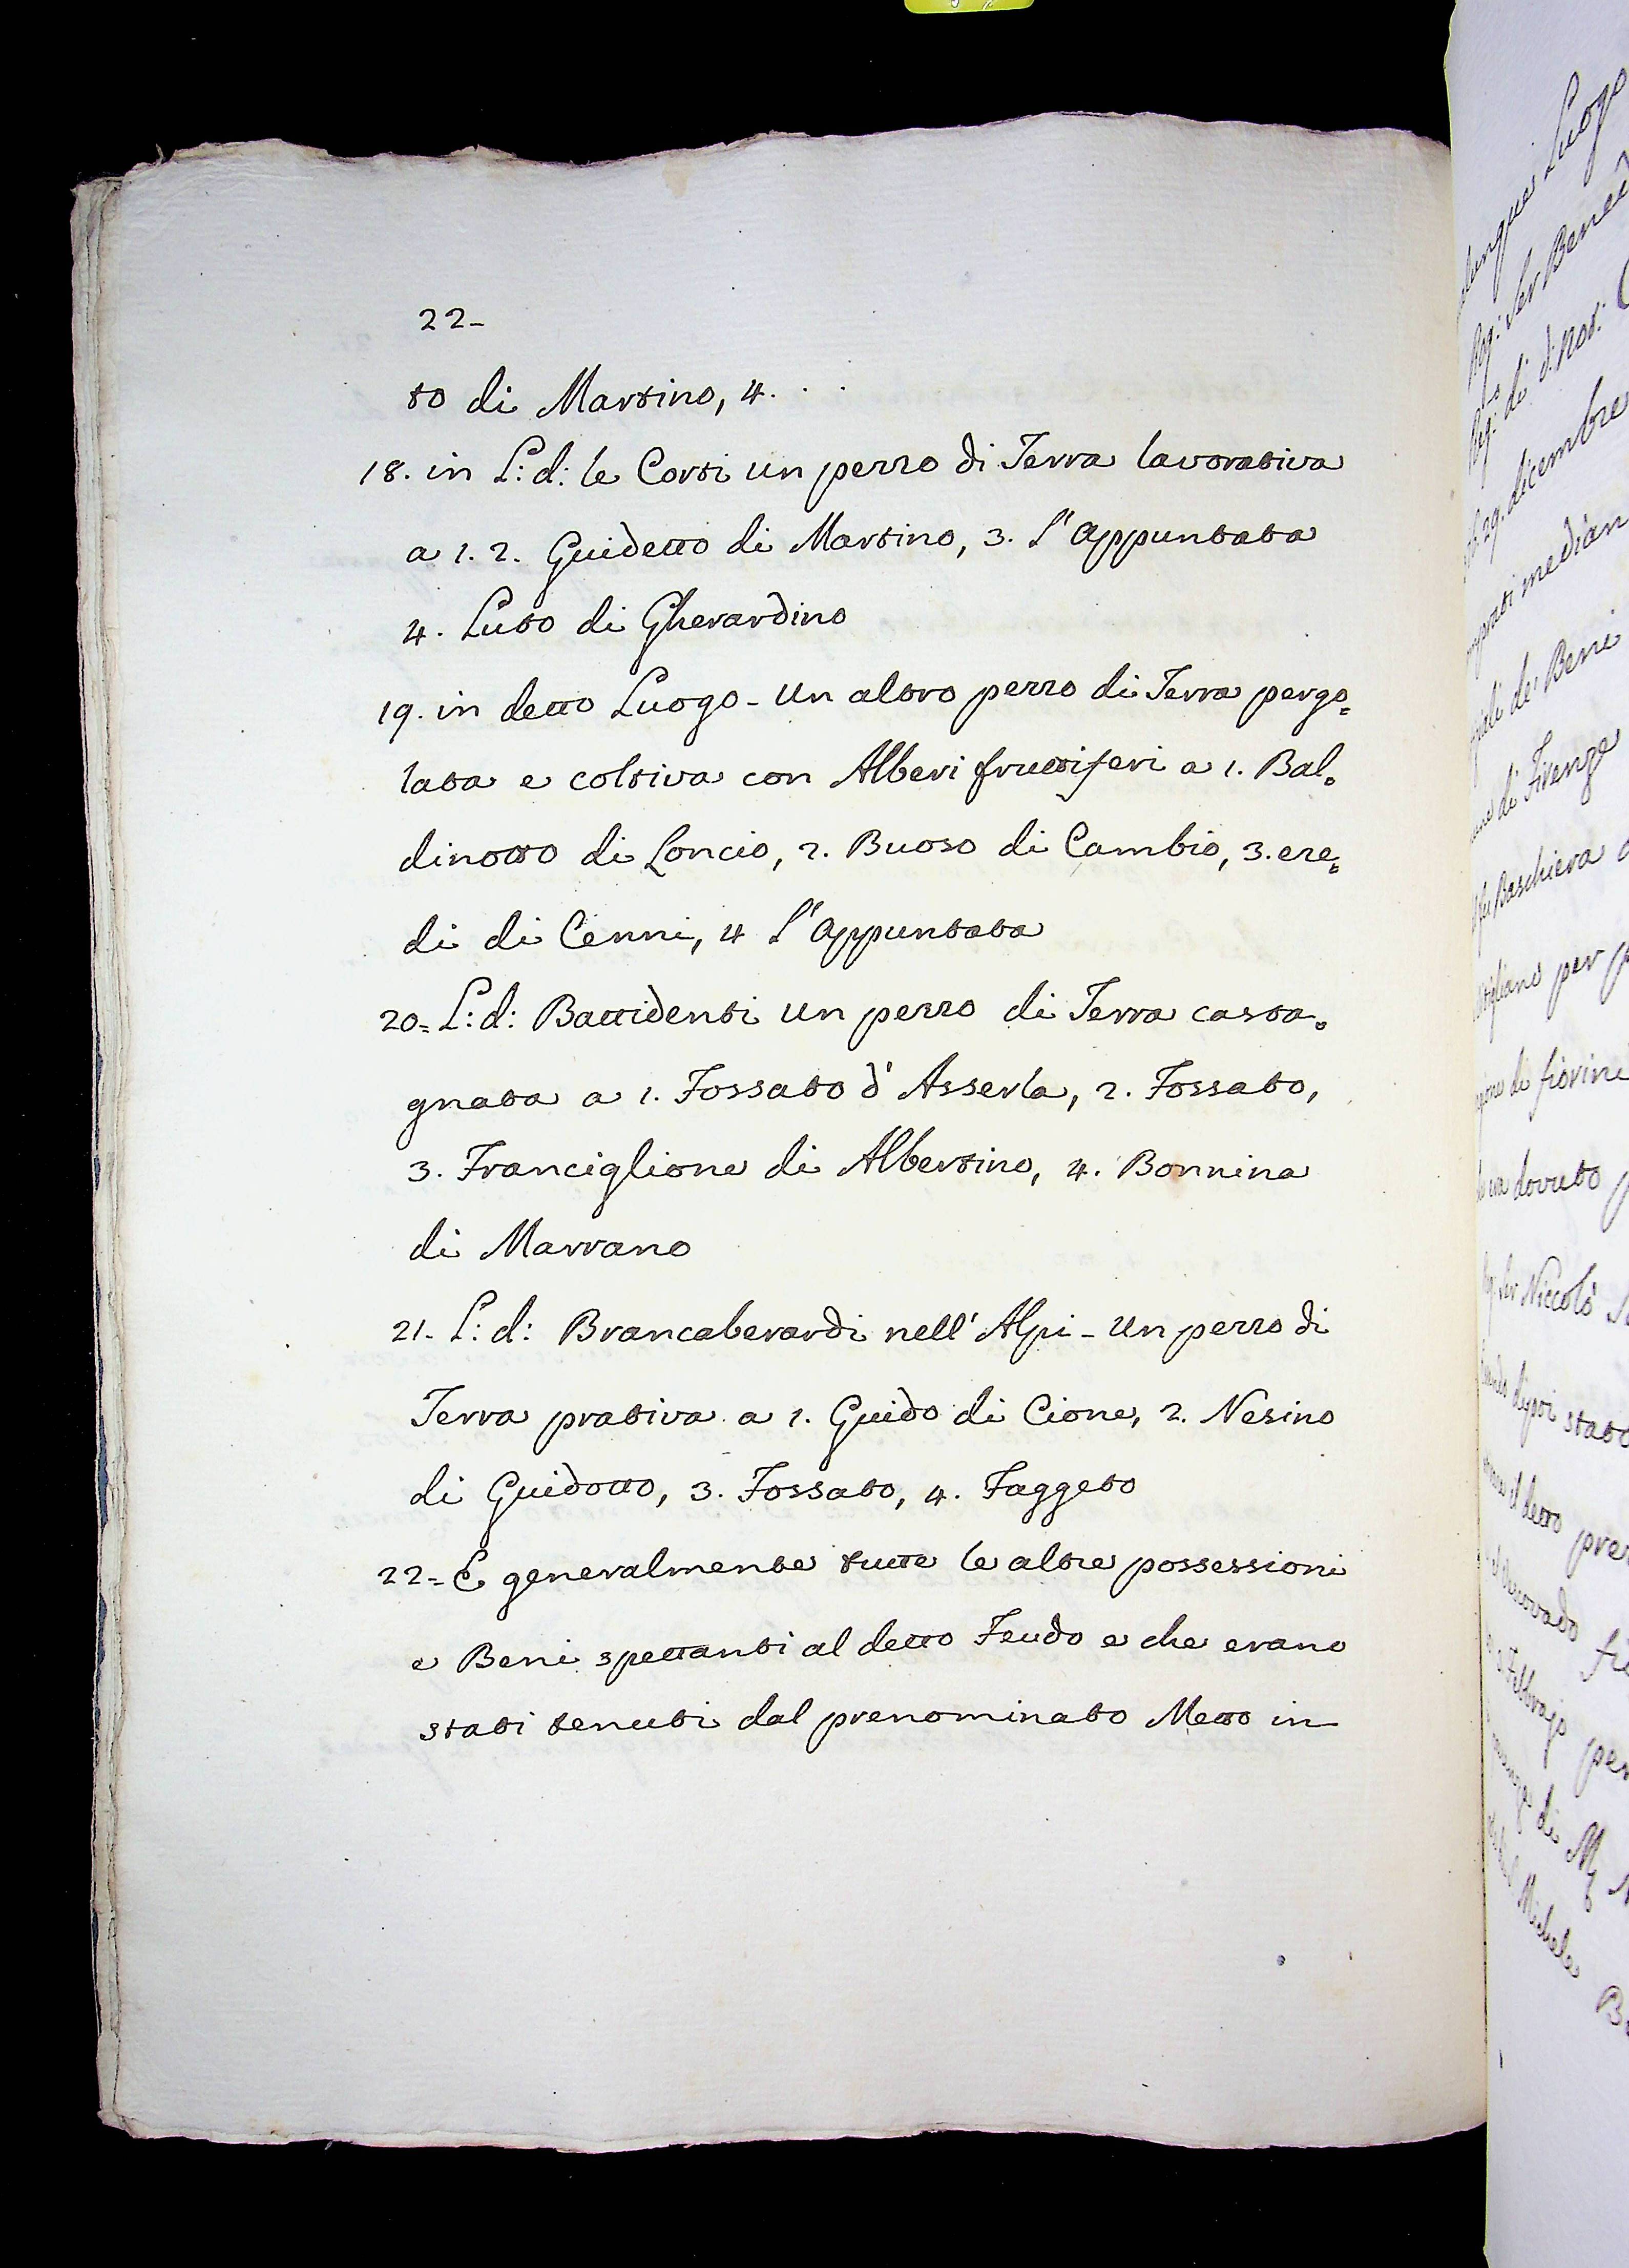 22-
to di Martino, 4. . .
18. in L: d: le Corti un pezzo di Terra lavorativa
a 1. 2. Guidetto di Martino, 3. l'Appuntata
4. Luto di Gherardino
19. in detto Luogo - Un altro pezzo di Terra pergo=
lata e coltiva con Alberi fruttiferi a 1. Bal=
dinotto di Loncio, 2. Buoso di Cambio, 3. ere=
di di Cenni, 4 l'Appuntata
20= L: d: Battidenti un pezzo di Terra casta=
gnata a 1. Fossato d'Asserla, 2. Fossato,
3. Franciglione di Albertino, 4. Bonnina
di Marrano
21- L: d: Brancaberardi nell'Alpi - Un pezzo di
Terra prativa a 1. Guido di Cione, 2. Nesino
di Guidotto, 3. Fossato, 4. Faggeto
22= E generalmente tutte le altre possessioni
e Beni spettanti al detto Feudo e che erano
stati tenuti dal prenominato Metto in
Luogo
29. dicembre
median
de' Beni
di Firenze
Baschiera
per
di fiorini
dovuto
Ser Niccolò
stato
il detto
Febbrajo
di
Michele